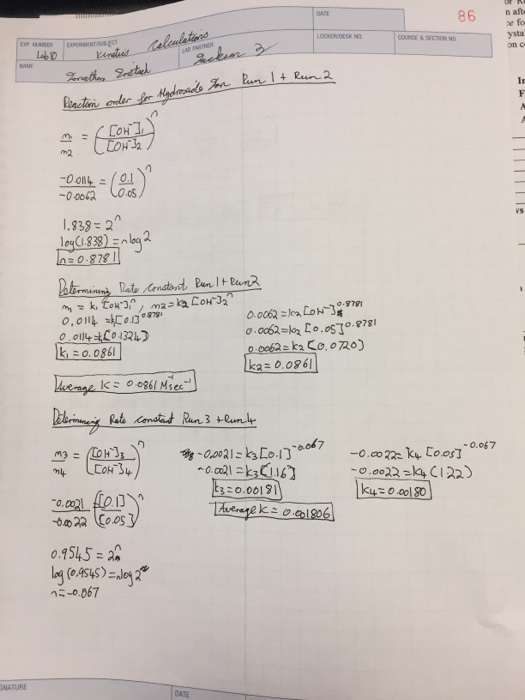 DATE
86
EXP NUMBER
EXPERIMENT/SUBJECT
Lab 10
Kinetics Calculations
LAB PARTNER
LOCKER/DESK NO.
COURSE & SECTION NO.
NAME
Reaction order for Hydroxide Ion Run 1 + Run 2
m1/m2 = ([OH-]1/[OH-]2)^n
-0.0114/-0.0062 = (0.1/0.05)^n
1.838 = 2^n
log(1.838) = nlog2
n = 0.8781
Determining Rate Constant Run 1 + Run 2
m1 = k1 [OH-]1^n, m2 = k2 [OH-]2^n
0.0114 = k[0.1]^0.8781
0.0114 = k[0.1324]
k1 = 0.0861
0.0062 = k2 [OH-]^0.8781
0.0062 = k2 [0.05]^0.8781
0.0062 = k2 [0.0720]
k2 = 0.0861
Average K = 0.0861 M^-1sec^-1
Determining Rate constant Run 3 + Run 4
m3/m4 = ([OH-]3/[OH-]4)^n
-0.0021/-0.0022 ([0.1]/[0.05])^n
0.9545 = 2^n
log(0.9545) = nlog2
n = -0.067
-0.0021 = k3[0.1]^-0.067
-0.0021 = k3[1.16]
k3 = 0.00181
Average k = 0.001806
-0.0022 = k4 [0.05]^-0.067
-0.0022 = k4 (1.22)
k4 = 0.00180
SNATURE
DATE